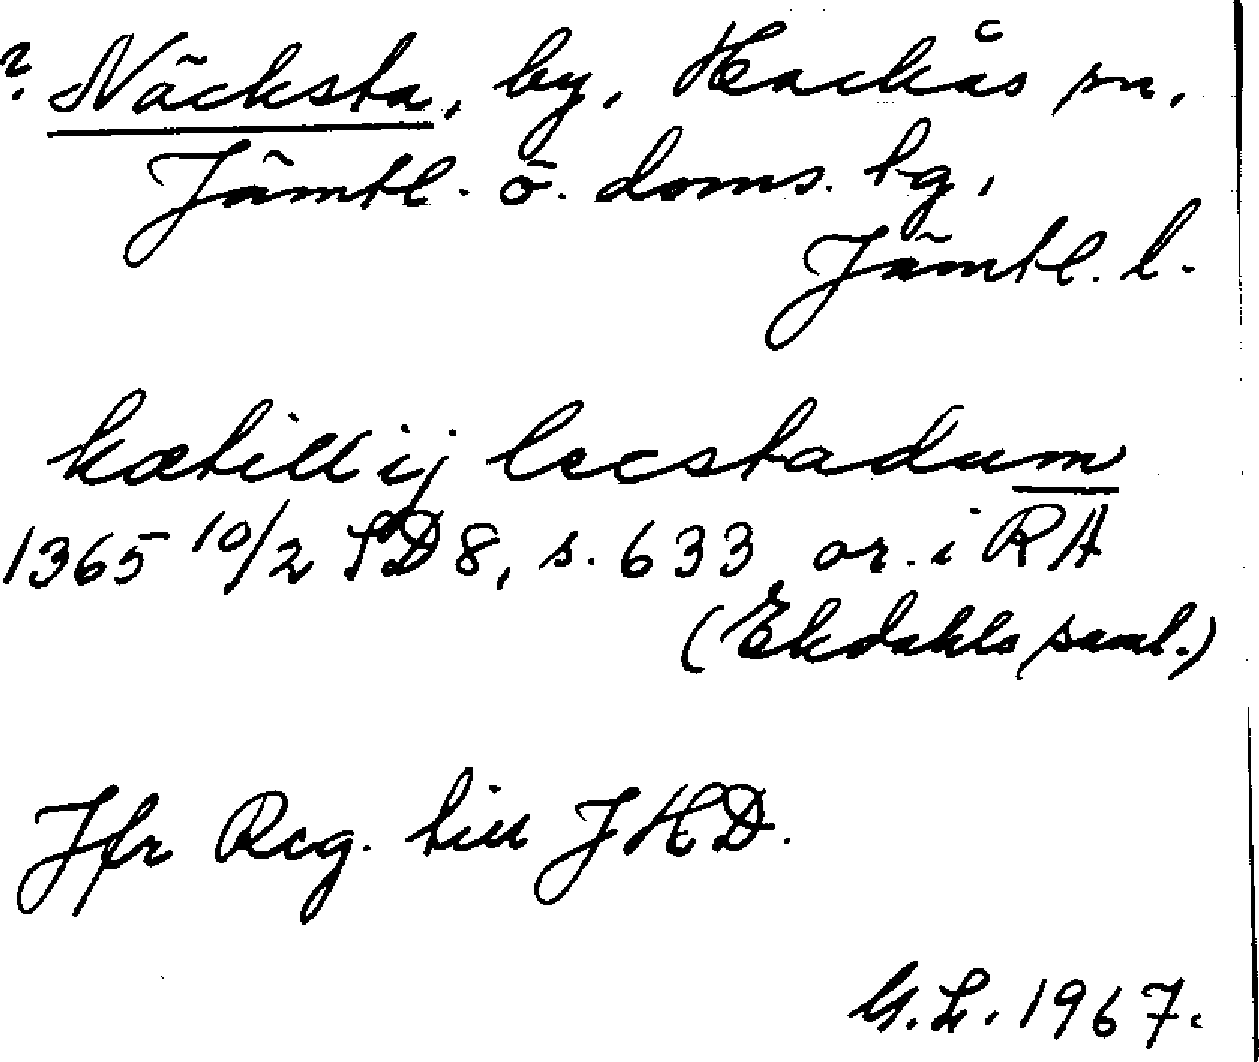 ? Näcksta, by, Hackås sn,
Jämtl. ö. doms. tg,
Jämtl. l.
kætill ij lecstadum
1365 10/2 SD 8, s. 633, or. i RA
(Ekdahls saml.)
Jfr Reg. till JHD.
G.L. 1967.